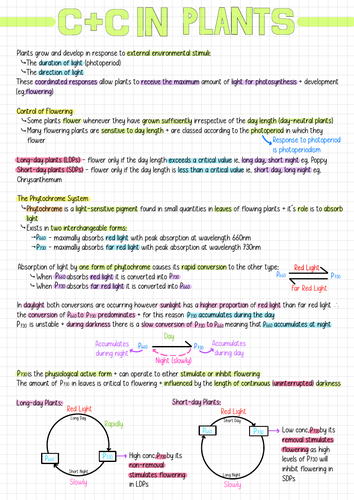 C+C IN PLANTS
Plants grow and develop in response to external environmental stimuli:
↳ The duration of light (photoperiod)
↳ The direction of light
These coordinated responses allow plants to receive the maximum amount of light for photosynthesis + development
(eg.flowering)
Control of Flowering
↳ Some plants flower whenever they have grown sufficiently irrespective of the day length (day-neutral plants)
↳ Many flowering plants are sensitive to day length + are classed according to the photoperiod in which they
flower
Response to photoperiod
is photoperiodism
Long-day plants (LDPs) - flower only if the day length exceeds a critical value ie. long day, short night eg. Poppy
Short-day plants (SDPs) - flower only if the day length is less than a critical value ie. short day, long night eg.
Chrysanthemum
The Phytochrome System
↳ Phytochrome is a light-sensitive pigment found in small quantities in leaves of flowing plants + it's role is to absorb
light
↳ Exists in two interchangeable forms:
→ P660 - maximally absorbs red light with peak absorption at wavelength 660nm
→ P730 - maximally absorbs far red light with peak absorption at wavelength 730nm
Absorption of light by one form of phytochrome causes its rapid conversion to the other type:
↳ When P660 absorbs red light it is converted into P730
↳ When P730 absorbs far red light it is converted into P660
Red Light
P660 P730
Far Red Light
In daylight both conversions are occurring however sunlight has a higher proportion of red light than far red light ∴
the conversion of P660 to P730 predominates + for this reason P730 accumulates during the day
P730 is unstable + during darkness there is a slow conversion of P730 to P660 meaning that P660 accumulates at night
Accumulates
during night
P660
Day
P730
Night (slowly)
Accumulates
during day
P730 is the physiological active form + can operate to either stimulate or inhibit flowering
The amount of P730 in leaves is critical to flowering + influenced by the length of continuous (uninterrupted) darkness
Long-day Plants:
Red Light
Long Day
Rapidly
P660
P730
Short Night
Slowly
High conc. P730 by its
non-removal
stimulates flowering
in LDPs
Short-day Plants:
Red Light
Short Day
P660
P730
Long Night
Slowly
Low conc. P730 by its
removal stimulates
flowering as high
levels of P730 will
inhibit flowering in
SDPs